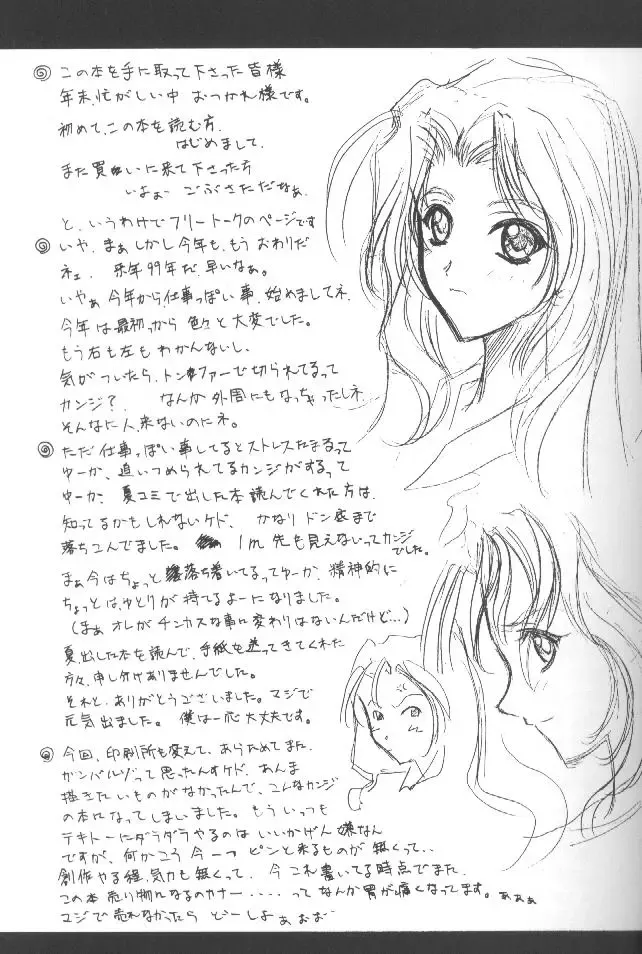 この本を手に取って下さった皆様
年末、忙がしい中 おつかれ様です。
初めて、この本を読む方、
はじめまして、
また買いに来て下さった方
いよぉー ごぶさただなぁ、
と、いうわけでフリートークのページです
いや、まぁしかし今年も、もう おわりだ
ネェ、 来年99年だ 早いなぁ。
いやぁ 今年から仕事っぽい事、始めましてネ、
今年は最初っから 色々と大変でした。
もう右も左もわかんないし、
気がついたら、トンファーで切られてるって
カンジ? なんか外周にもなっちゃったしネ
そんなに人、来ないのにネ。
ただ仕事っぽい事してるとストレスたまるって
ゆーか、追いつめられてるカンジがするって
ゆーか、夏コミで出した本読んでくれた方は、
知ってるかもしれないケド、 かなりドン底まで
落ちこんでました。 1m先も見えないってカンジ
でした。
まぁ今はちょっと 落ち着いてるってゆーか、精神的に
ちょっとは、ゆとりが持てるよーになりました。
(まぁ オレがチンカスな事に変わりはないんだけど…)
夏、出した本を読んで、手紙を送ってきてくれた
方々、申し分けありませんでした。
それと、ありがとうございました。マジで
元気出ました。 僕は一応大丈夫です。
今回、印刷所も変えて、あらためてまた、
ガンバルゾって思ったんすケド、あんま
描きたいものがなかったんで、こんなカンジ
の本になってしまいました。もう いっつも
テキトーにダラダラやるのは いいかげん嫌なん
ですが、何かこう 今一つ ピンと来るものが無くって‥
創作やる程、気力も無くって、 今これ書いてる時点でまた、
この本 売り物になるのカナー‥‥‥って なんか胃が痛くなってます。ぁぁぁ
マジで売れなかったら どーしよ ぁぉぉ